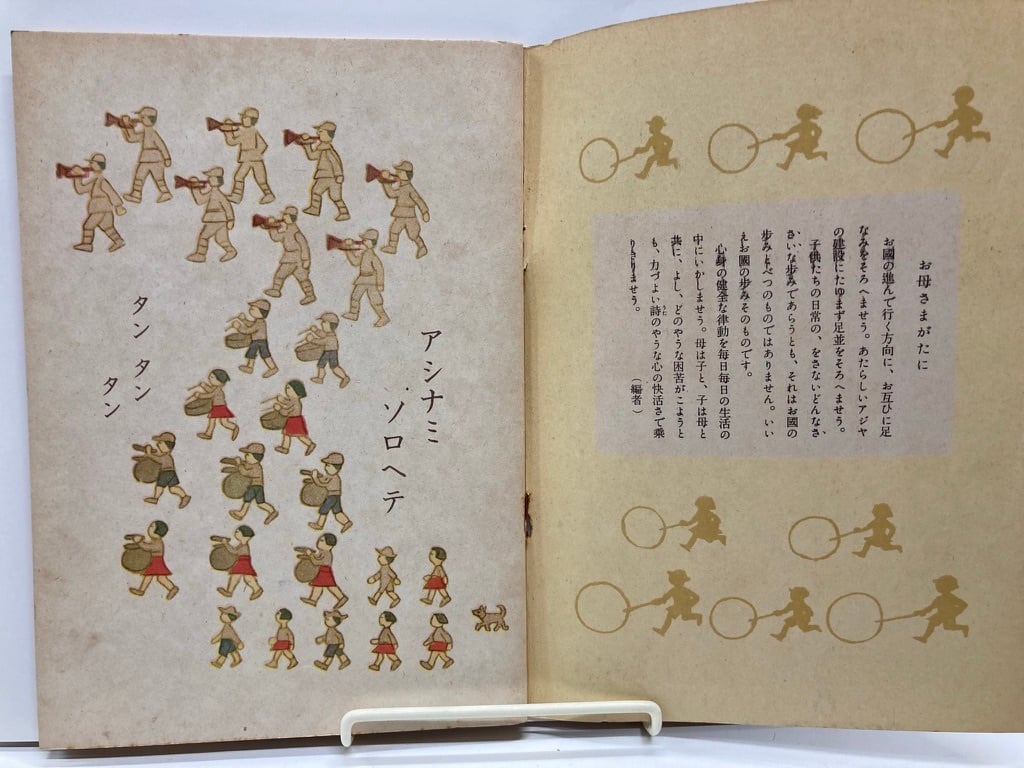 お母さまがたに
お國の進んで行く方向に、お互ひに足
なみをそろへませう。あたらしいアジヤ
の建設にたゆまず足並をそろへませう。
子供たちの日常の、をさないどんなさ
さいな歩みであらうとも、それはお國の
歩みとべつのものではありません。いい
えお國の歩みそのものです。
心身の健全な律動を毎日毎日の生活の
中にいかしませう。母は子と、子は母と
共に、よし、どのやうな困苦がこようと
も、力づよい詩のやうな心の快活さで乘
りきりませう。　（編者）
アシナミ
ソロヘテ
タン タン
タン